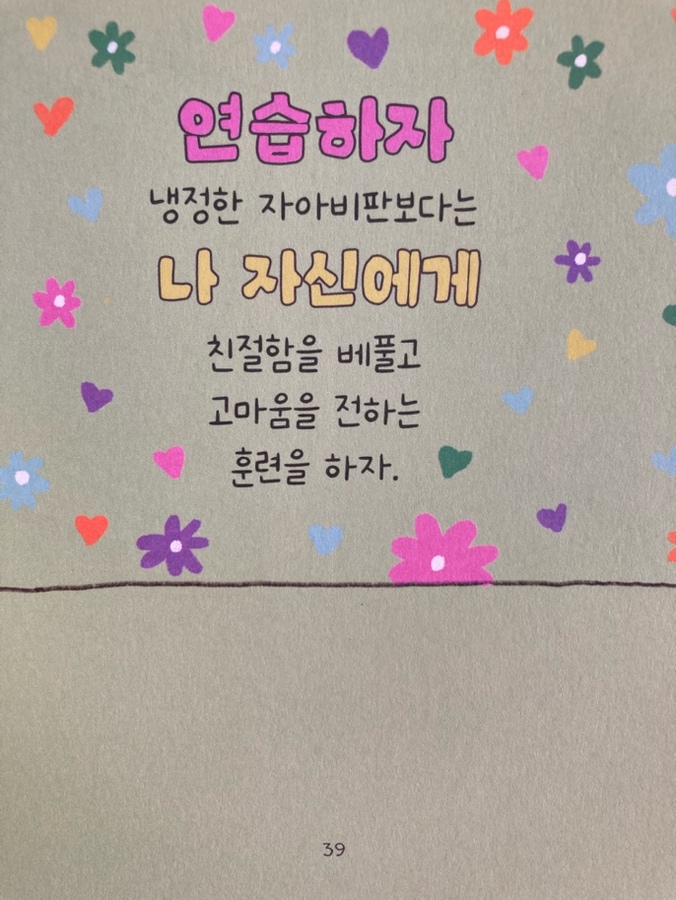 연습하자
냉정한 자아비판보다는
나 자신에게
친절함을 베풀고
고마움을 전하는
훈련을 하자.
39